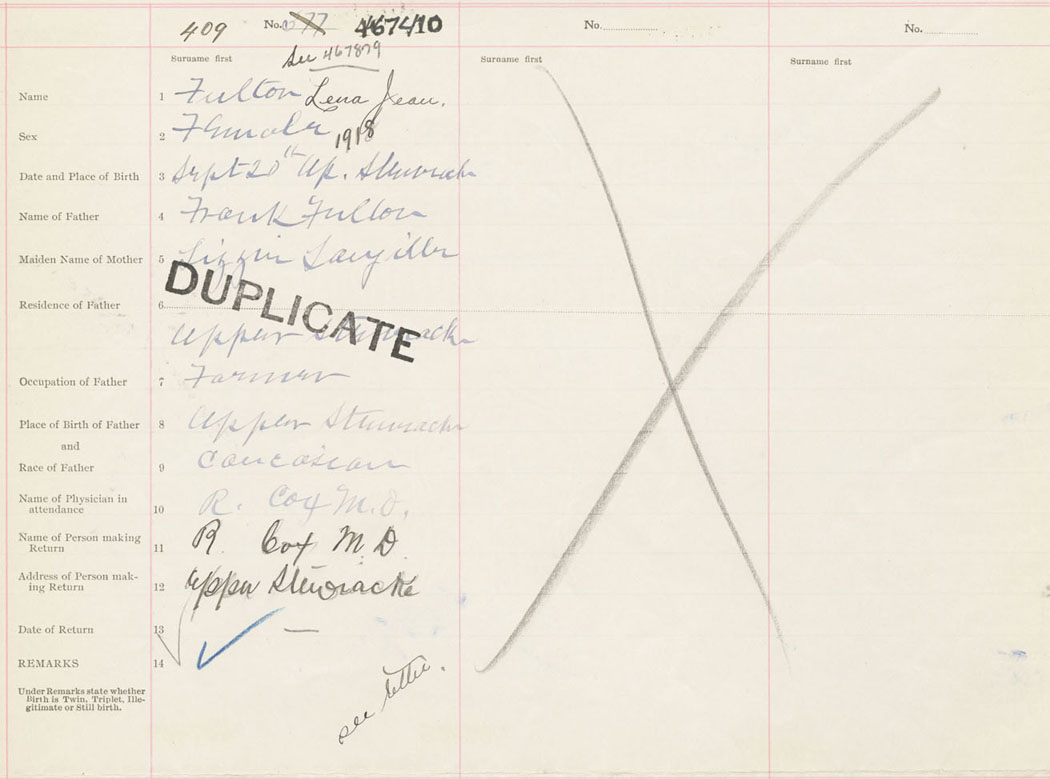 409 No. 377 467410 No. No.
See 467879
Surname first Surname first Surname first
Name 1 Fulton Lena Jean.
Sex 2 Female 1918
Date and Place of Birth 3 Sept 20th Up. Stewiacke
Name of Father 4 Frank Fulton
Maiden Name of Mother 5 Lizzie
DUPLICATE
Residence of Father 6
Upper Stewiacke
Occupation of Father 7 Farmer
Place of Birth of Father 8 Upper Stewiacke
and
Race of Father 9 Caucasian
Name of Physician in
attendance 10 R. Cox M.D.
Name of Person making
Return 11 R. Cox M.D.
Address of Person mak-
ing Return 12 Upper Stewiacke
Date of Return 13 —
REMARKS 14
see letter.
Under Remarks state whether
Birth is Twin, Triplet, Ille-
gitimate or Still birth.